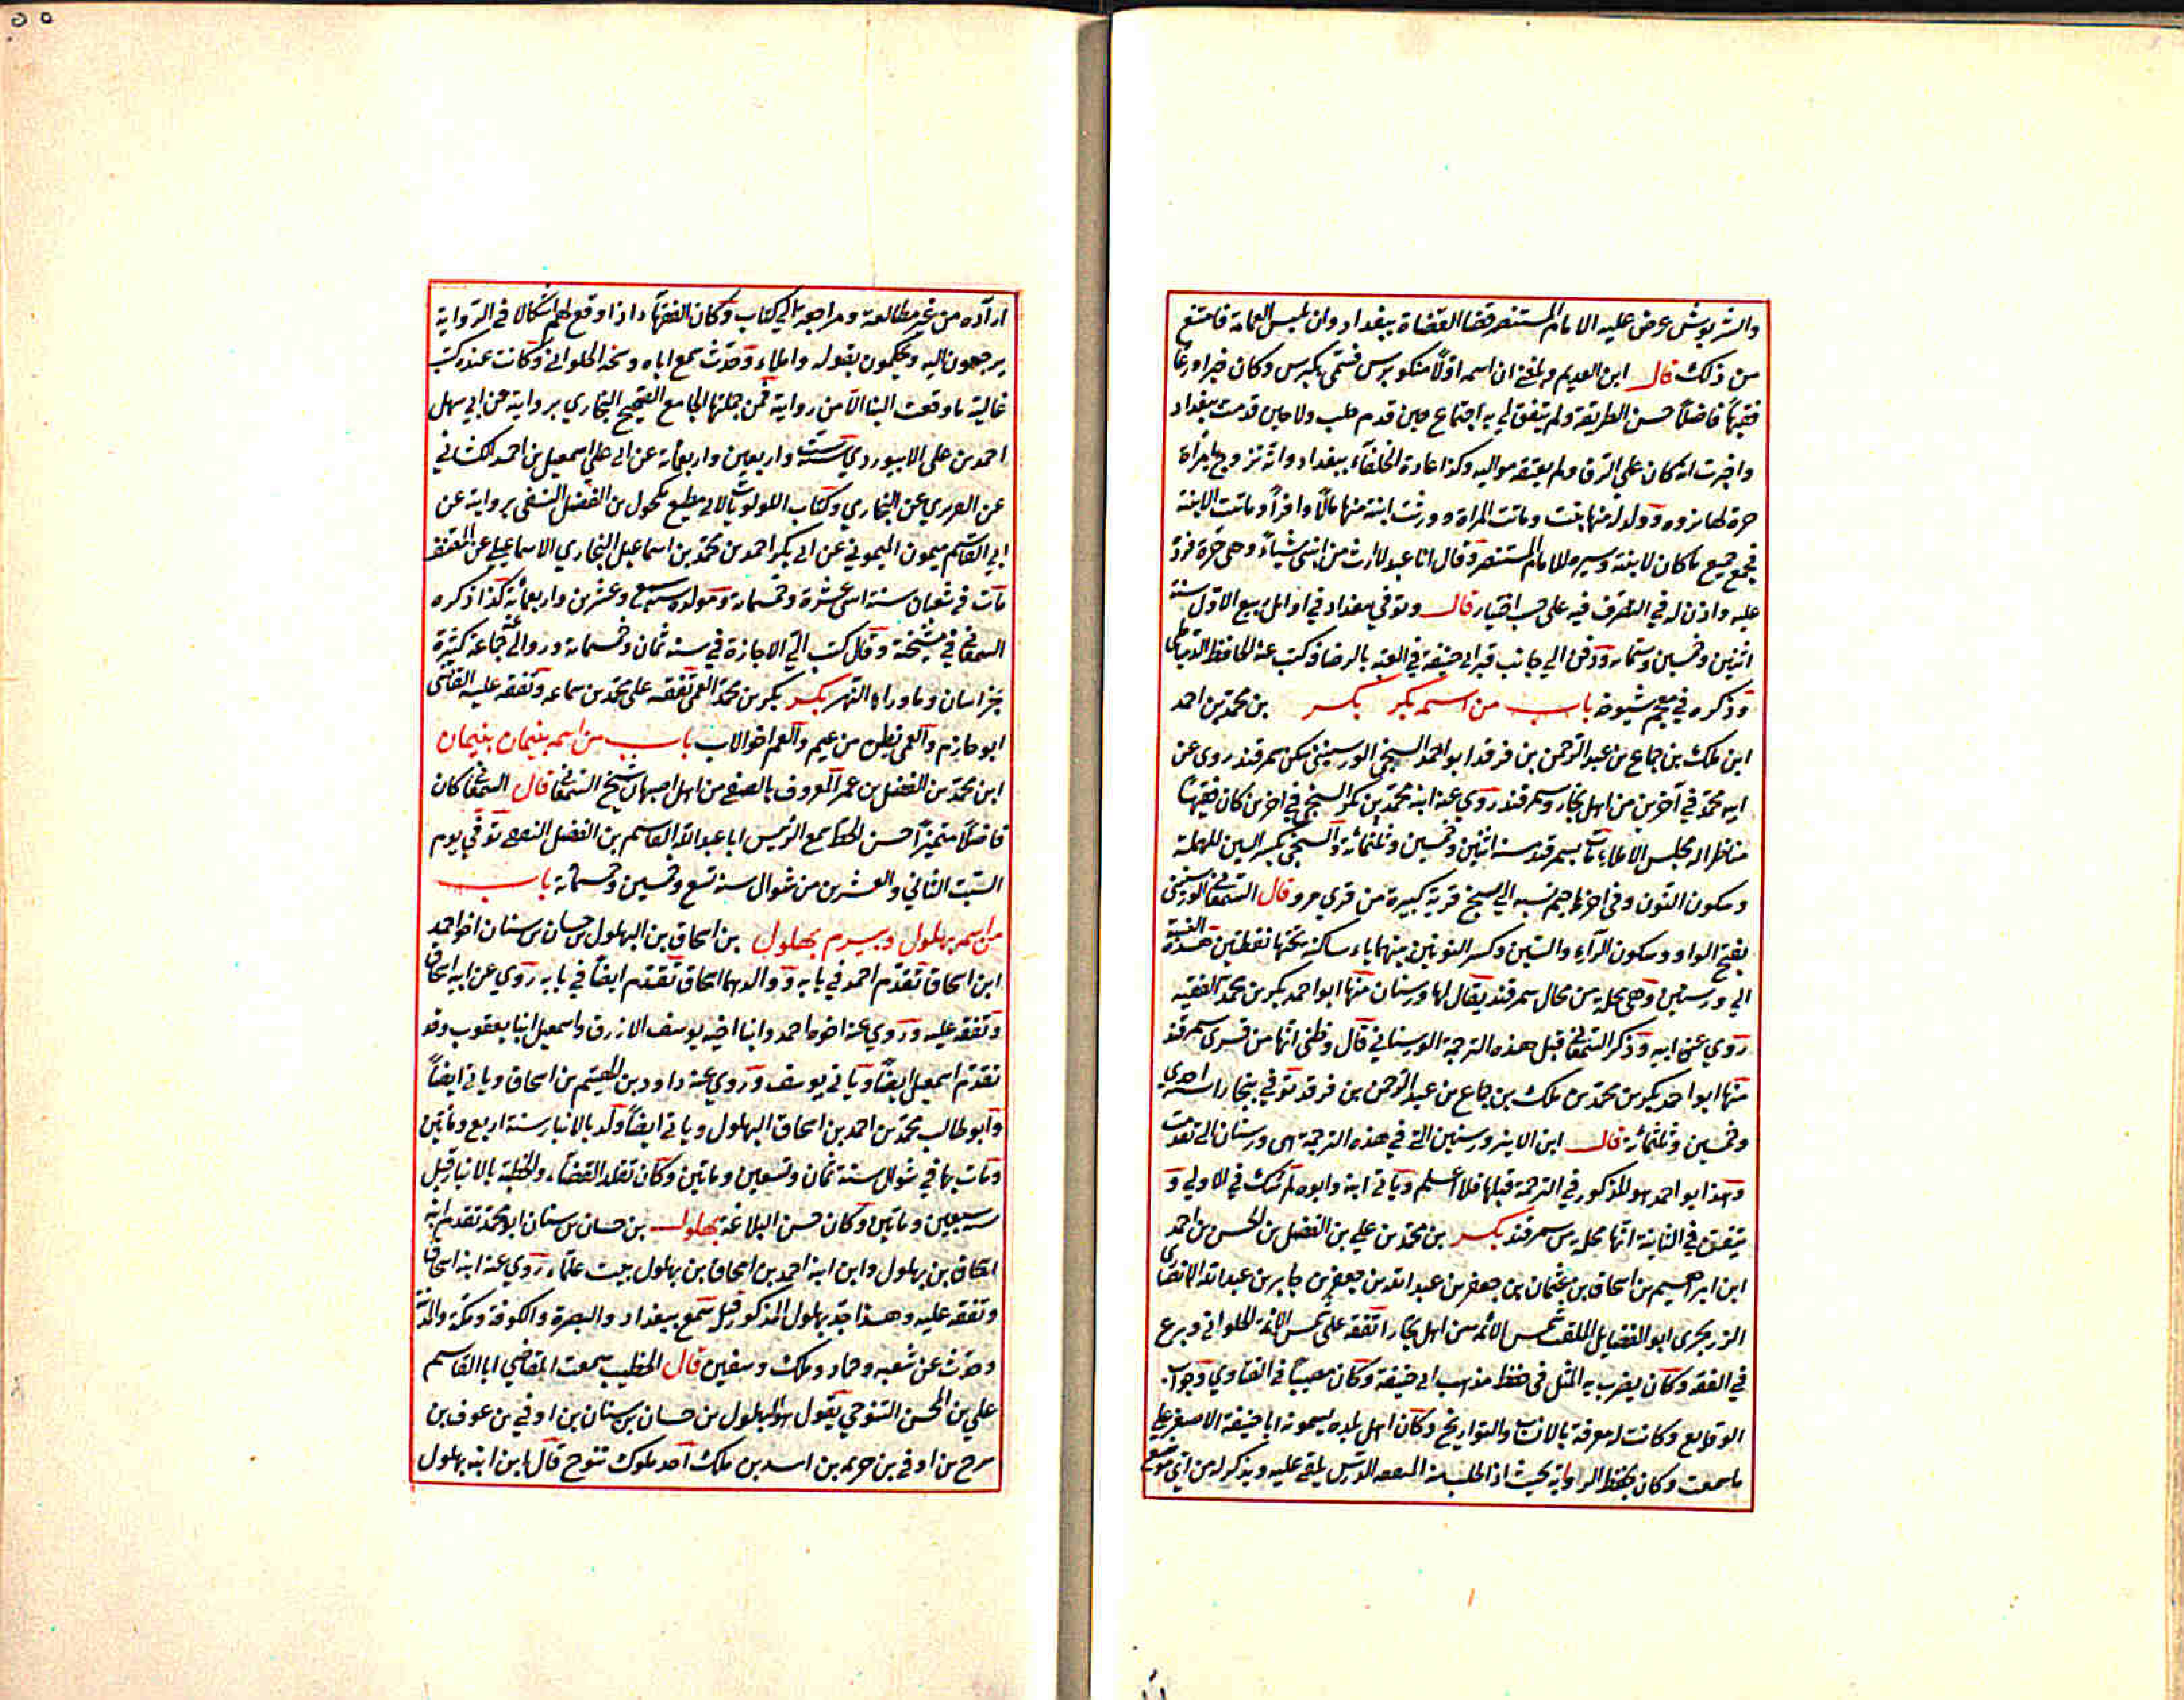 والشربوش عرض عليه الامام المستنصر قضا القضاة ببغداد وان يلبس العمامة فامتنع
من ذلك قال ابن العديم وبلغني ان اسمه اولا منكوبرس فسمى بكبرس وكان خيرا ورعا
فقيها فاضلا حسن الطريقة ولم يتفق لي به اجتماع حين قدم حلب ولا حين قدمت بغداد
واخبرت انه كان على الرق ولم يعتقه مواليه وكذا عادة الخلفاء ببغداد وانه تزوج بامراة
حرة لها ثروه وولد له منها بنت وماتت المراة وورثت ابنته منها مالا وافرا وماتت الابنة
فجمع جميع ما كان لابنته وسيره للامام المستنصر وقال انا عبد لا ارث من ابنتى شياء وهى حرة فرد
عليه واذن له في التصرف فيه على حسب اختياره قال وتوفي ببغداد في اوائل ربيع الاول سنة
اثنين وخمسين وستمائه ودفن الي جانب قبر ابي حنيفة في القبه بالرصافه كتب عنه الحافظ الدمياطى
وذكره في معجم شيوخه باب من اسمه بكر بكر بن محمد بن احمد
ابن ملك بن جماع بن عبد الرحمن بن فرقد ابو احمد السنجي الورسنينى سكن سمرقند روى عن
ابيه محمد في آخرين من اهل بخارا وسمرقند روي عنه ابنه محمد بن بكر السنجي في اخرين كان فقيها
مناظرا له مجلس الاملاء مات بسمرقند سنة اثنين وخمسين وثلثمائة والسنجي بكسر السين المهملة
وسكون النون وفى اخرها جيم نسبه الي سنج قرية كبيرة من قري مرو قال السمعاني الورسنينى
بفتح الواو وسكون الرآء والسين وكسر النونين بينهما ياء ساكنة تحتها نقطتين هذه النسبة
الي ورسنين وهى محلة من محال سمرقند يقال لها ورسنان منها ابو احمد بكر بن محمد الفقيه
روي عن ابيه وذكر السمعاني قبل هذه الترجمة الورسناني قال وظنى انها من قرى سمرقند
منها ابو احمد بكر بن محمد بن ملك بن جماع بن عبد الرحمن بن فرقد توفي ببخارا سنة احدي
وخمسين وثلثمائة قال ابن الاثير ورسنين التي في هذه الترجمة هى ورسنان التي تقدمت
وهذا ابو احمد هو المذكور في الترجمة قبلها فلا اعلم وياتي ابنه وابوه لم شك في الاولي و
يتفق في الثانية انها محلة من سمرقند بكر بن محمد بن علي بن الفضل بن الحسن بن احمد
ابن ابراهيم بن اسحاق بن عثمان بن جعفر بن عبد الله بن جعفر بن جابر بن عبد الله الانصاري
الزرنجرى ابو الفضايل الملقب شمس الائمه من اهل بخارا تفقه على شمس الائمة الحلواني وبرع
في الفقه وكان يضرب به المثل في حفظ مذهب ابي حنيفة وكان مصيبا في الفتاوي وجواب
الوقايع وكانت له معرفة بالانساب والتواريخ وكان اهل بلده يسمونه ابا حنيفة الاصغر على
ما سمعت وكان يحفظ الرواية بحيث اذا طلب منه المتفقه الدرس يلقى عليه ويذكر له من اي موضع
اراده من غير مطالعة ومراجعة الي كتاب وكان الفقهآء اذا وقع لهم اشكالا في الرواية
يرجعون اليه ويحكمون بقوله واملاء وحدث سمع اباه ومحمد الحلواني وكانت عنده كتب
غالية ما وقعت الينا الا من رواية فمن جملتها الجامع الصحيح البخاري بروايته عن ابي سهل
احمد بن على الابيوردي سنة ست واربعين واربعمائة عن ابي على اسمعيل بن احمد الكشاني
عن الفربري عن البخاري وكتاب اللولويات لابي مطيع مكحول بن الفضل النسفى بروايته عن
ابي القاسم ميمون الميموني عن ابي بكر احمد بن محمد بن اسماعيل البخاري الاسماعيلي عن المصنف
مات في شعبان سنة اثنى عشرة وخمسمائة ومولده سبع وعشرين واربعمائة كذا ذكره
السمعاني في مشيخته وقال كتب الي الاجازة في سنة ثمان وخمسمائة وروا لي عنه جماعة كثيرة
بخراسان وماوراء النهر بكر بكر بن محمد العمى تفقه على محمد بن سماعه وتفقه عليه القاضى
ابو حازم والعمى بطن من تميم والعم اخو الاب باب من اسمه بنيمان بنيمان
ابن محمد بن الفضل بن عمر المعروف بالصفي من اهل اصبهان شيخ السمعاني قال السمعاني كان
فاضلا متميزا حسن الخط سمع الرئيس ابا عبد الله القاسم بن الفضل توفي يوم
السبت الثاني والعشرين من شوال سنة تسع وخمسين وخمسمائة باب
من اسمه بهلول وبيرم بهلول بن اسحاق بن البهلول بن حسان بن سنان اخو احمد
ابن اسحاق تقدم احمد في بابه ووالدهما اسحاق تقدم ايضا في بابه روي عن ابيه اسحاق
وتفقه عليه وروي عنه اخوه احمد وابنا اخيه يوسف الازرق واسمعيل ابنا يعقوب وقد
تقدم اسمعيل ايضا وياتي يوسف وروي عنه داود بن الهيثم بن اسحاق وياتي ايضا
وابو طالب محمد بن احمد بن اسحاق البهلول وياتي ايضا ولد بالانبار سنة اربع ومأتين
ومات بها في شوال سنة ثمان وتسعين ومأتين وكان تقلد القضاء والخطبة بالانبار قبل
سبعين ومأتين وكان حسن البلاغة بهلول بن حسان بن سنان ابو محمد تقدم ابنه
اسحاق بن بهلول وابن ابنه احمد بن اسحاق بن بهلول بيت علماء روي عنه ابنه اسحاق
وتفقه عليه وهذا جد بهلول المذكور قبل سمع ببغداد والبصرة والكوفة ومكة والمدينة
وحدث عن شعبه وحماد وملك وسفين قال الخطيب سمعت القاضي ابا القاسم
علي بن الحسن التنوخي يقول هو البهلول بن حسان بن سنان بن اوفي بن عوف بن
سرح بن اوفي بن خزيمه بن اسد بن ملك احد ملوك تنوخ قال ابن ابنه بهلول